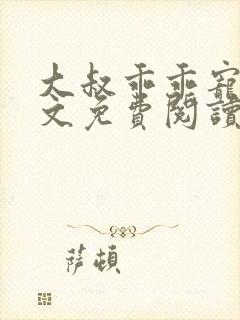 大叔乖乖寵
文免費閱讀
薩頓